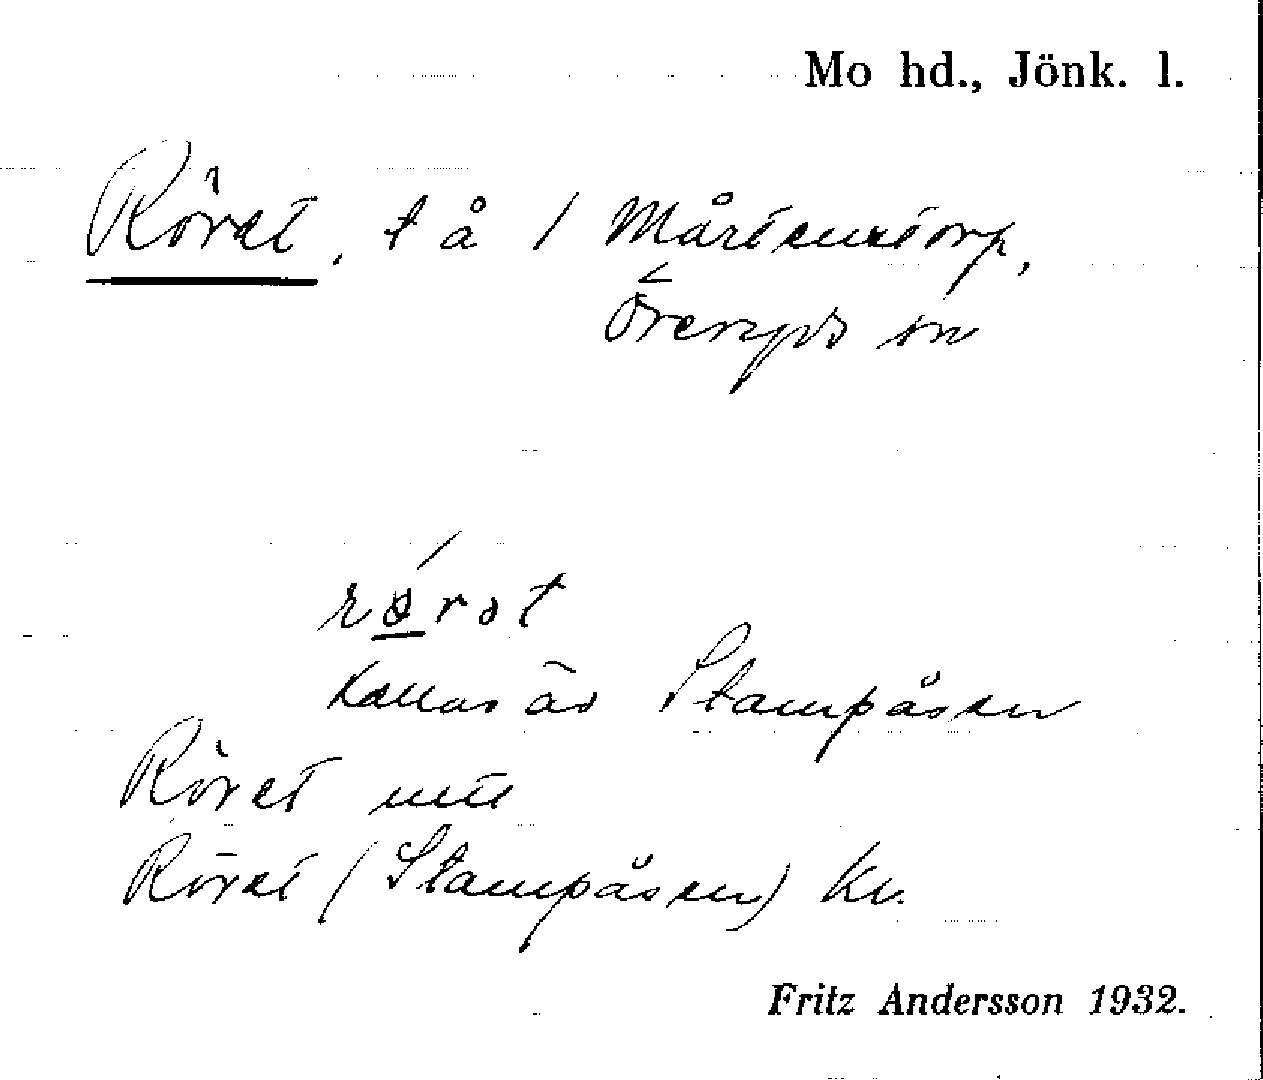 Mo hd., Jönk. l.
Röret, t å 1 Mårtenstorp,
Öreryds sn
rørət
kallas äv Stampåsen
Röret mtl
Röret (Stampåsen) Kv.
Fritz Andersson 1932.